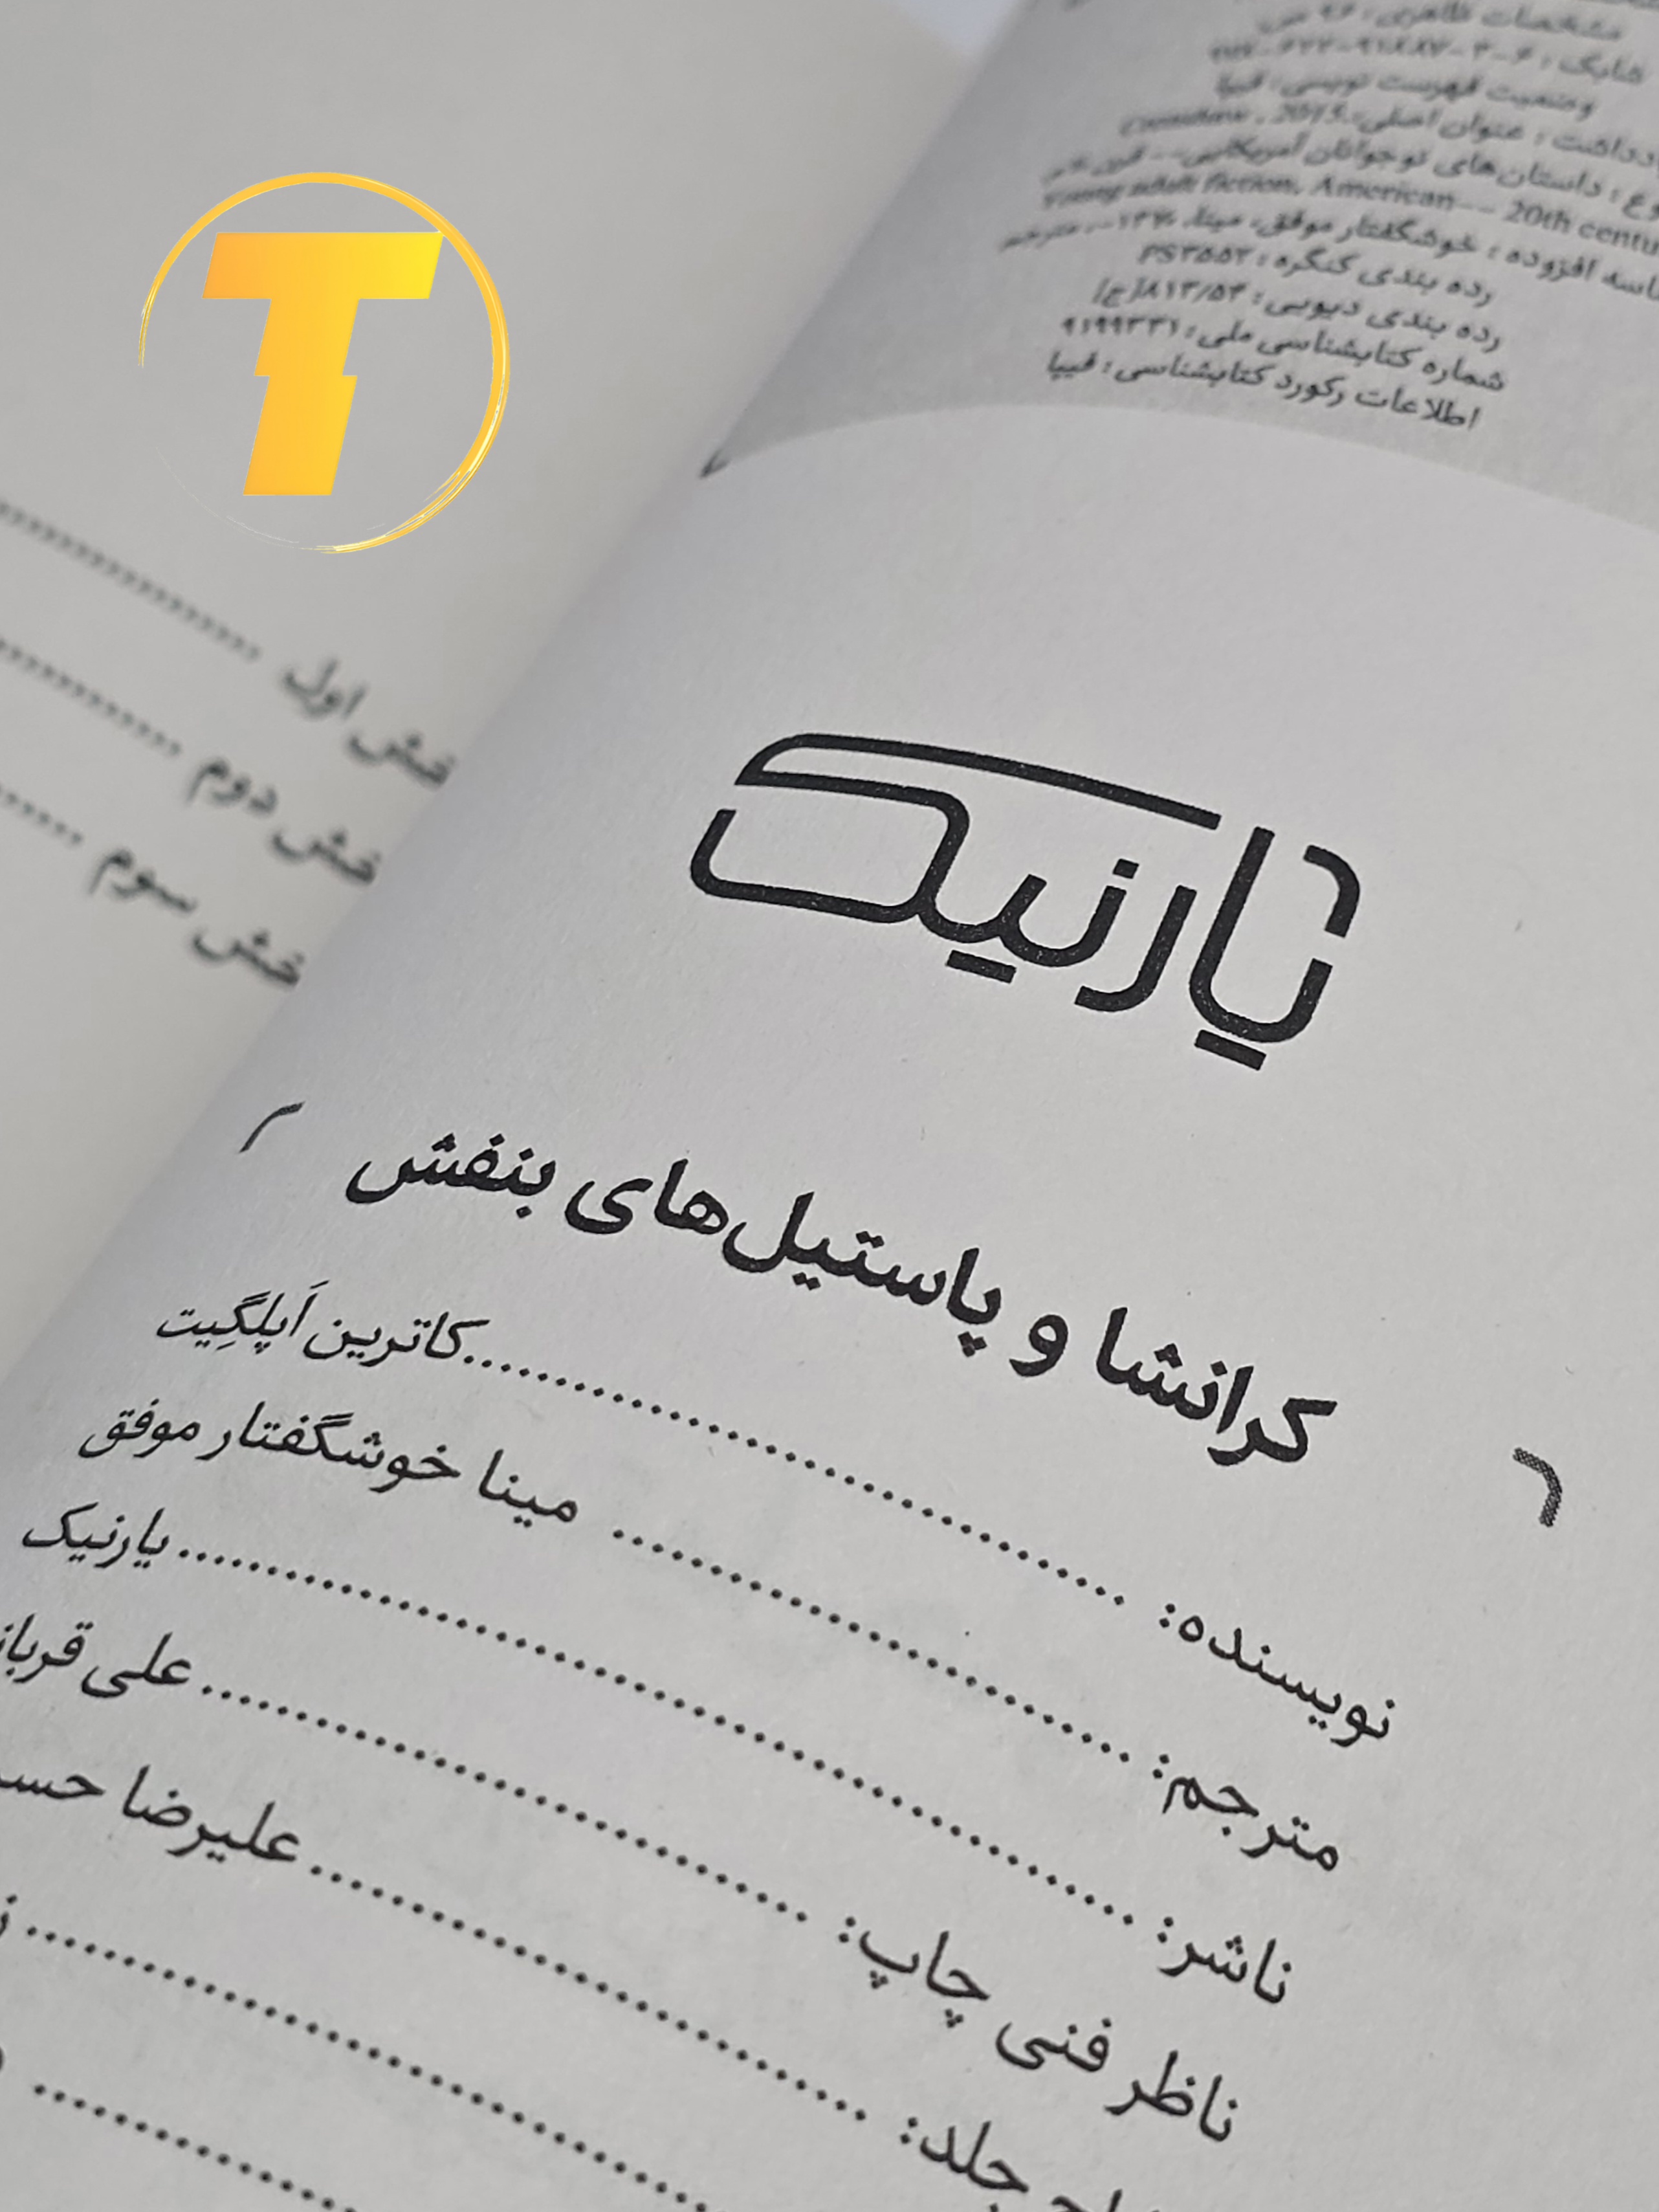 مشخصات ظاهری : ۹۶ ص
شابک :
وضعیت فهرست نویسی : فیپا
عنوان اصلی: Crenshaw , 2015.
داستان‌های نوجوانان آمریکایی -- قرن
Young adult fiction, American -- 20th centu
افزوده : خوشگفتار موفق، مینا، ۱۳۶۰-، مترجم
رده بندی کنگره : PS۳۵۵۲
رده بندی دیویی : ۸۱۳/۵۴[ج]
شماره کتابشناسی ملی : ۹۱۹۹۳۳۱
اطلاعات رکورد کتابشناسی : فیپا
یارنیک
کرانشا و پاستیل‌های بنفش
نویسنده: کاترین اَپلگِیت
مترجم: مینا خوشگفتار موفق
ناشر: یارنیک
ناظر فنی چاپ: علی قربان
جلد: علیرضا حس
خش اول
خش دوم
خش سوم
T